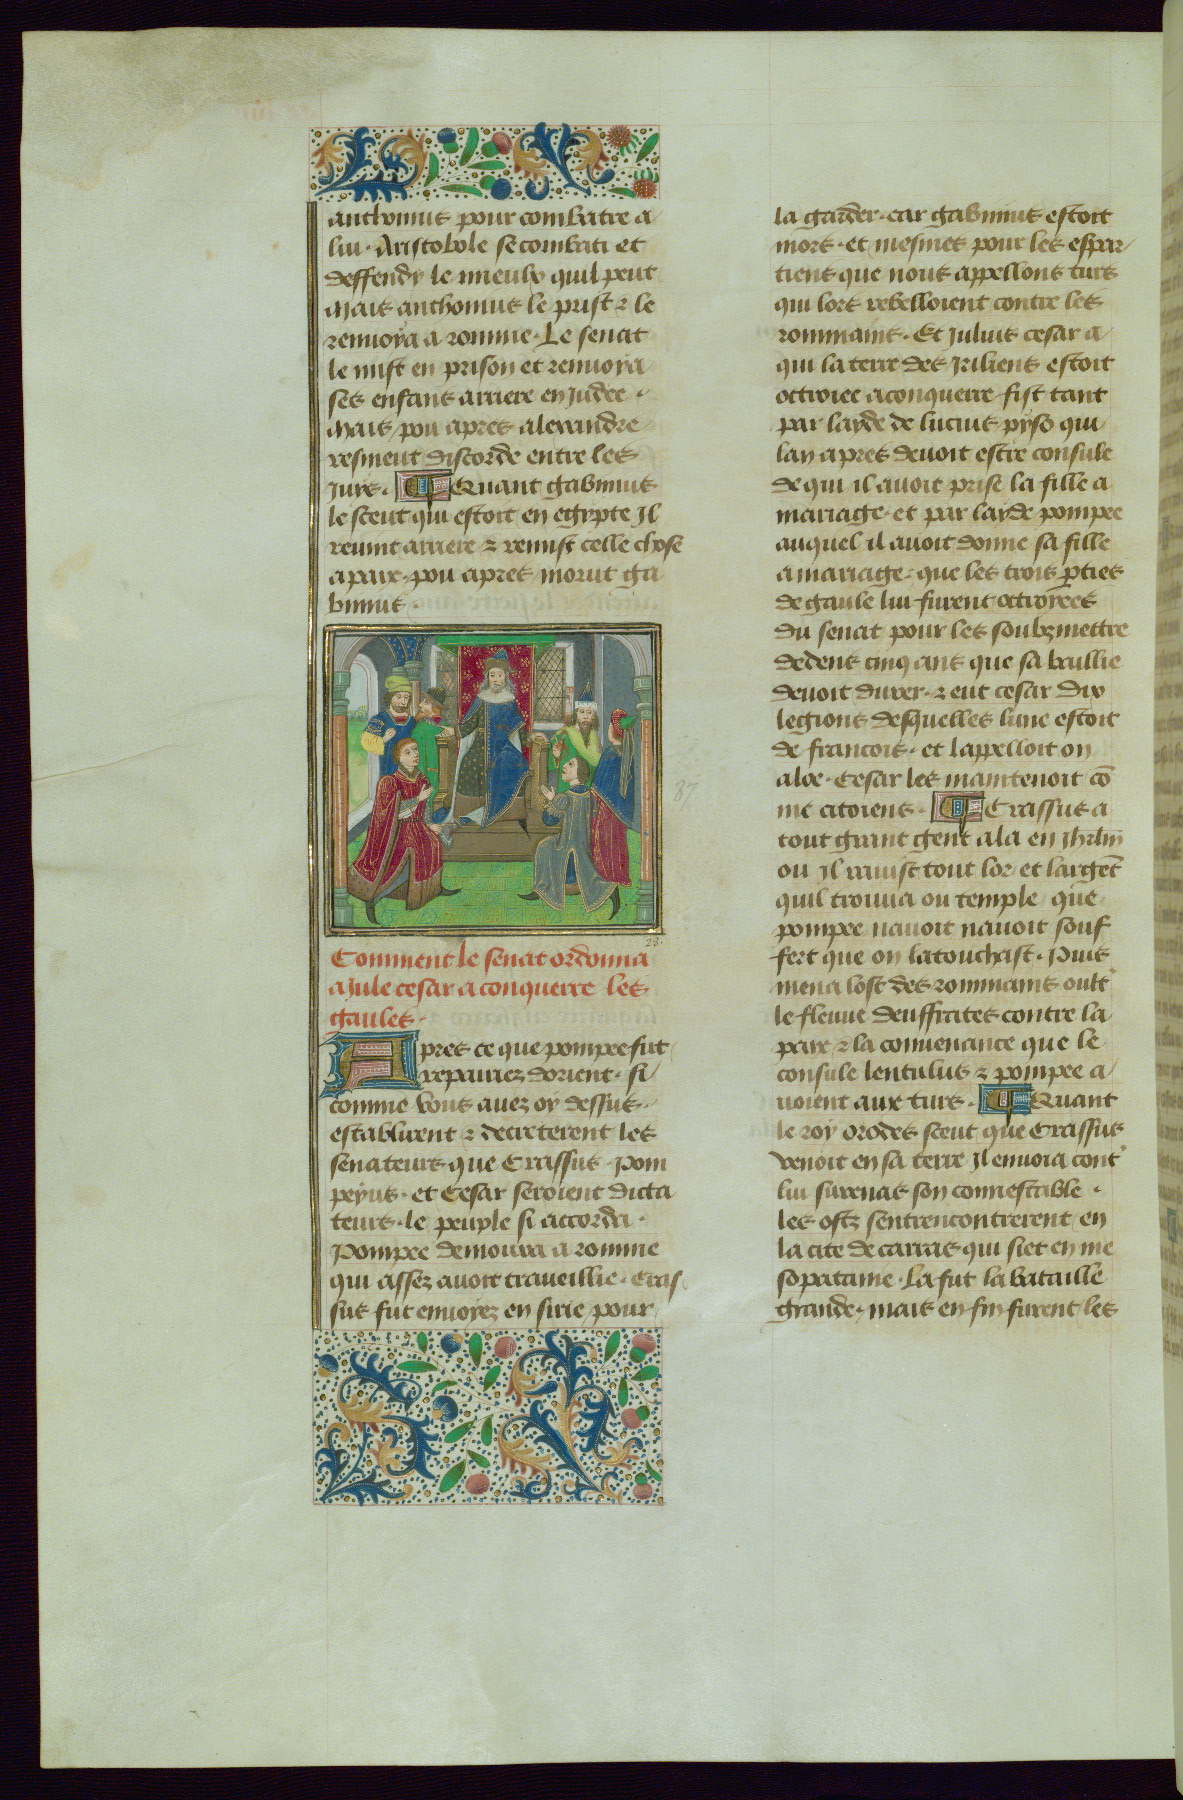 anthonius pour combatre a
lui. Aristobole se combati et
deffendy le mieulx quil peut
Mais anthonius le prist ⁊ le
renuoya a romme. Le senat
le mist en prison et renuoya
ses enfans arriere en Judee.
Mais pou apres alexandre
resmeut discorde entre les
Juifs. Quant gabinius
le sceut qui estoit en egypte Il
reuint arriere ⁊ remist celle chose
a paix. pou apres morut ga
binius.
87
28.
Comment le senat ordonna
a Jule cesar a conquerre les
gaules.
Apres ce que pompee fut
repairiez dorient. si
comme vous auez oy dessus.
establirent ⁊ decreterent les
senateurs que Crassus. Pom
peyus. et Cesar seroient dicta
teurs. le peuple si accorda.
Pompee demoura a romme
qui assez auoit traueillie. Cras
sus fut enuoyez en sirie pour
la garder. car gabinius estoit
mors. et mesmes pour les espar
tiens que nous appellons turs
qui lors rebelloient contre les
rommains. Et Julius cesar a
qui la terre des estoit
ottroiee a conquerre fist tant
par layde de lucius pyso qui
lan apres deuoit estre consule
de qui il auoit prise la fille a
mariage. et par layde pompee
auquel il auoit donne sa fille
a mariage. que les trois pties
de gaule lui furent ottroyees
du senat pour les soubzmettre
dedens cinq ans que sa baillie
deuoit durer. ⁊ eut cesar dix
legions desquelles lune estoit
de francois. et lappelloit on
aloe. Cesar les maintenoit cõ
me citoiens. Crassus a
tout grant gent ala en Jhrlm̃
ou Il rauist tout lor et largẽt
quil trouua ou temple que
pompee nauoit nauoit souf
fert que on latouchast. Puis
mena lost des rommains oult'
le fleuue deuffrates contre la
paix ⁊ la conuenance que le
consule lentulus ⁊ pompee a
uoient aux turs. Quant
le roy orodes sceut que Crassus
venoit en sa terre Il enuoia cont'
lui surenas son connestable.
les ostz sentrencontrerent en
la cite de carras qui siet en me
sopatamie. La fut la bataille
grande. mais en fin furent les